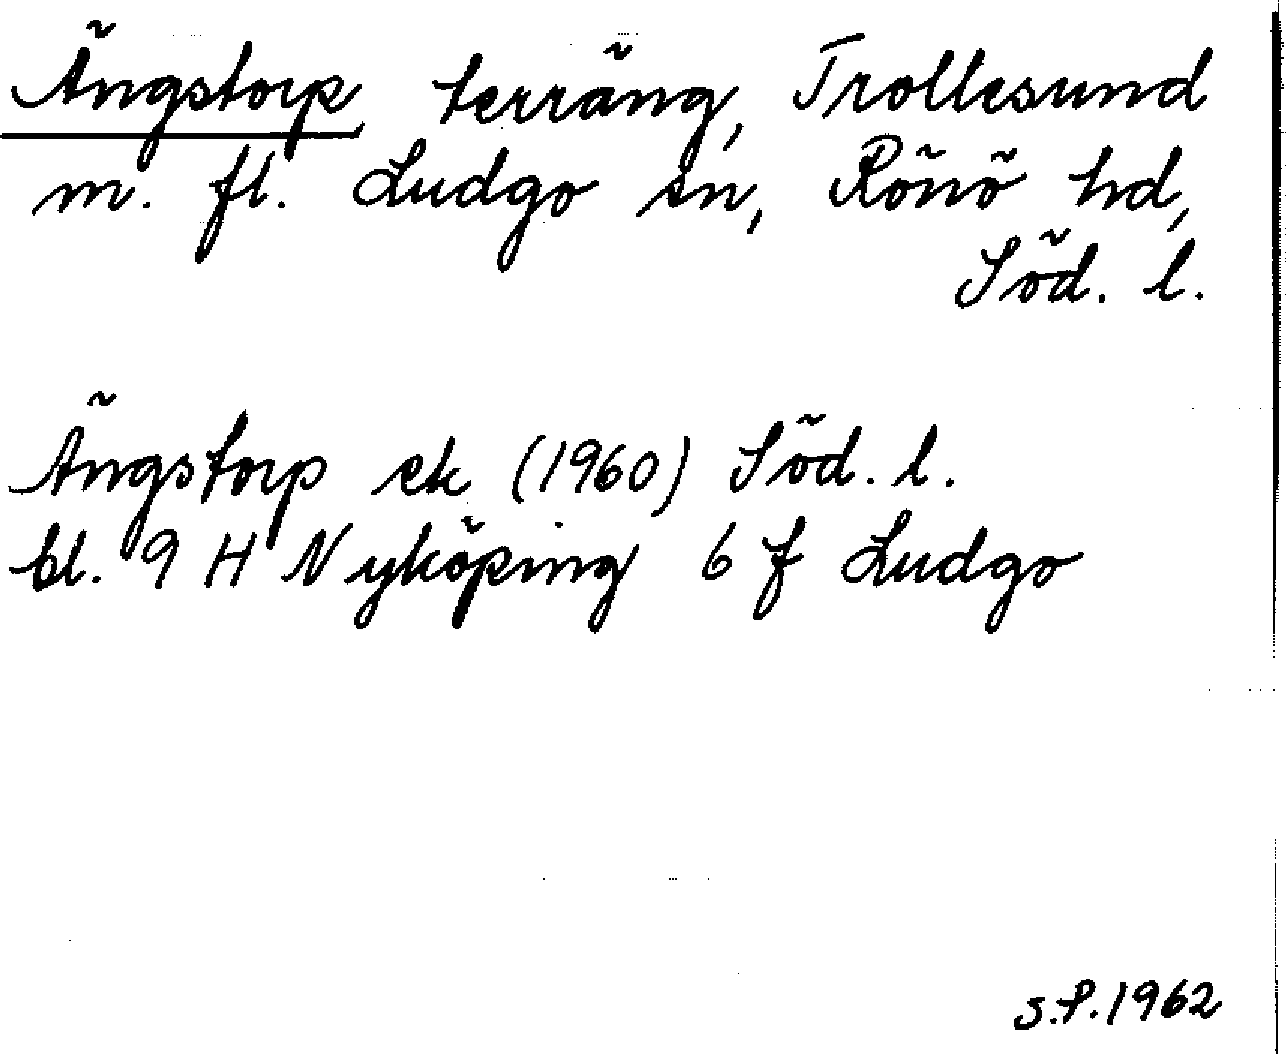 Ängstorp terräng, Trollesund
m. fl. Ludgo sn, Rönö hd,
Söd. l.
Ängstorp ek (1960) Söd. l.
bl. 9 H Nyköping 6 f Ludgo
S.P. 1962